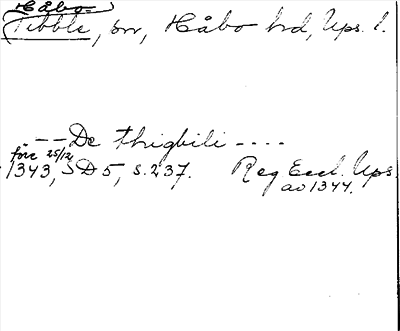 Håbo-
Tibble, sn, Håbo hrd, Ups. l.
-- De thigbili ----
före 25/12
1343, SD 5, s. 237. Reg Eccl. Ups.
av 1344.